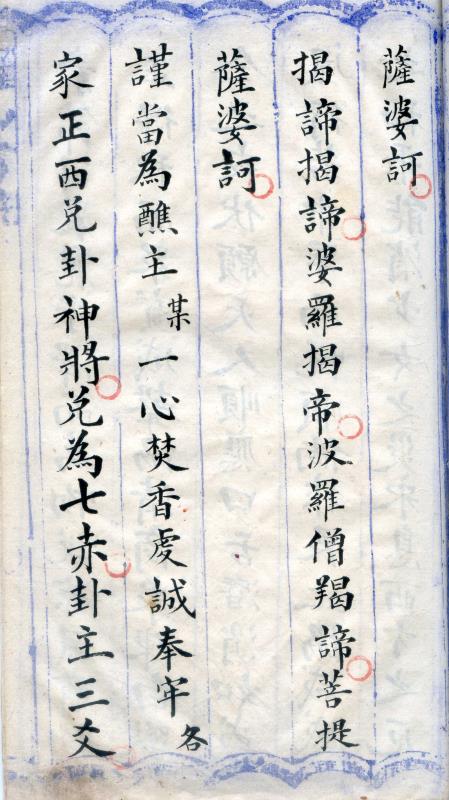 薩婆訶
揭諦揭諦婆羅揭帝波羅僧羯諦菩提
薩婆訶
謹當為醮主某一心焚香虔誠奉牢各
家正西兌卦神將兌為七赤卦主三爻